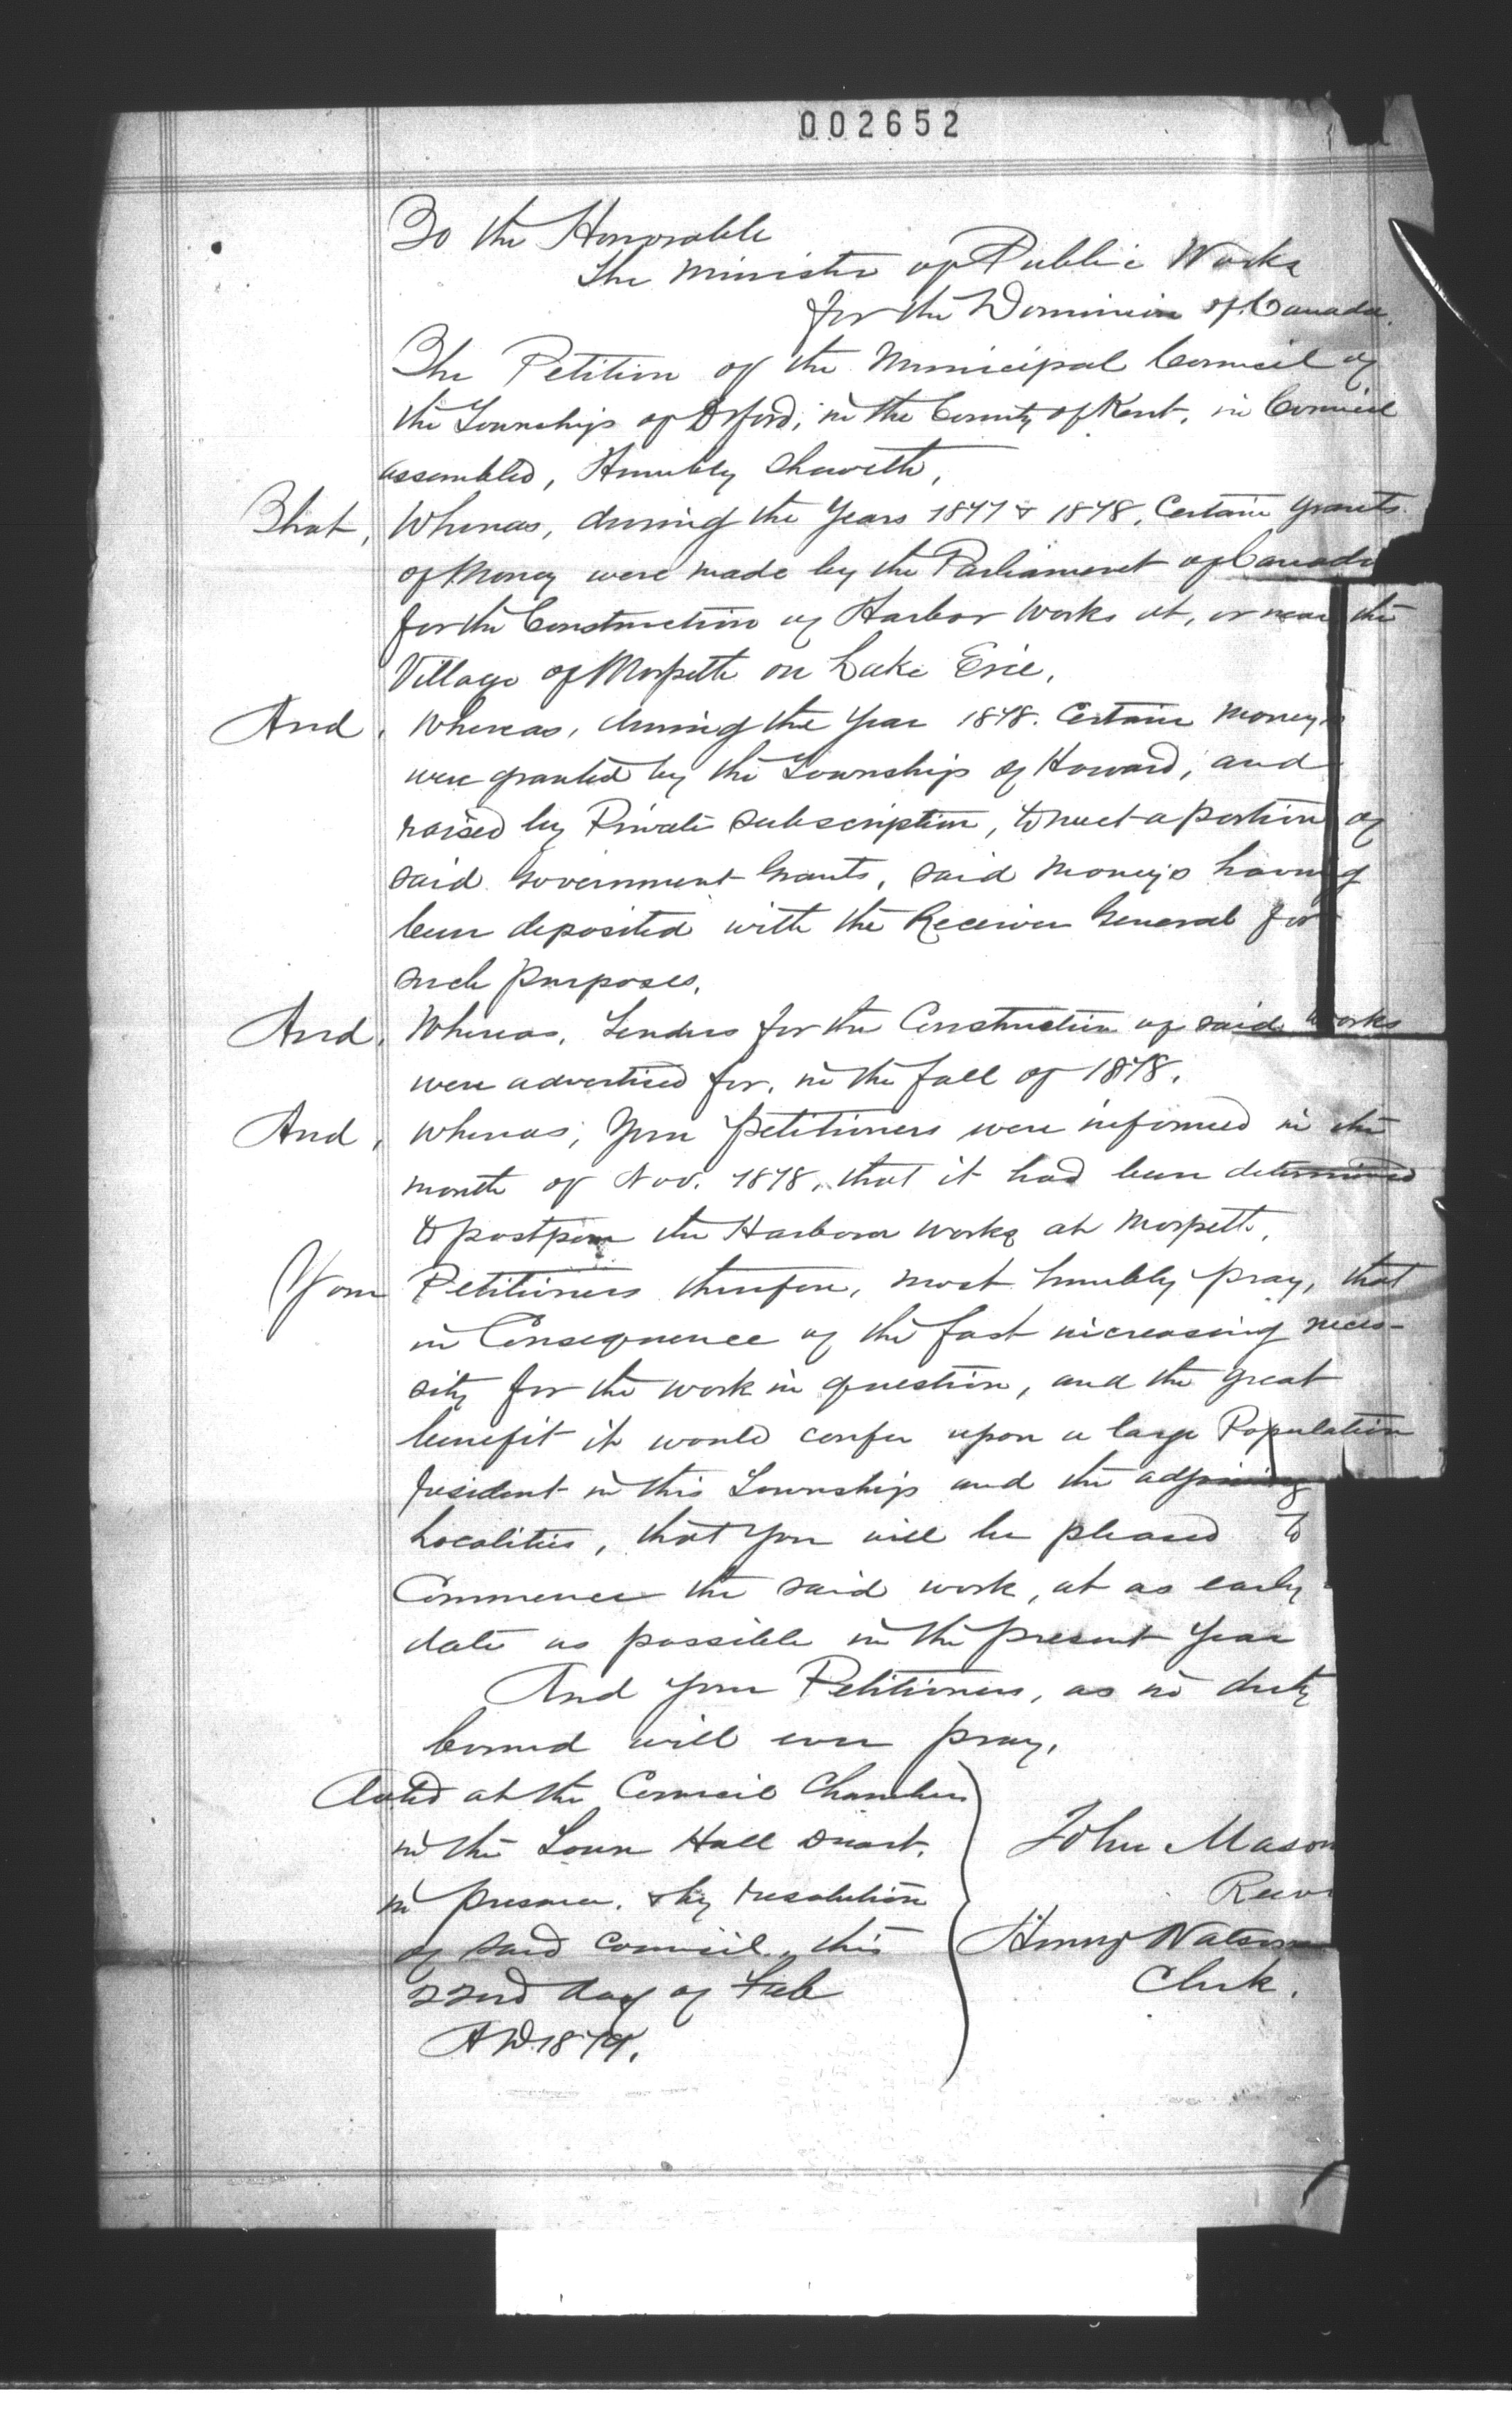 002652
To the Honorable
The Minister of Public Works
for the Dominion of Canada.
The Petition of the Municipal Council of
the Township of Orford, in the County of Kent, in Council
assembled, Humbly Sheweth,
That, Whereas, during the Years 1877 & 1878, Certain grants
of Money were made by the Parliament of Canada
for the Construction of Harbor Works at, or near the
Village of Morpeth on Lake Erie.
And, Whereas, during the Year 1878. Certain Moneys
were granted by the Township of Howard, and
raised by Private Subscription, to meet a portion of
said Government Grants, said Moneys having
been deposited with the Receiver General for
such purposes.
And, Whereas, Tenders for the Construction of said Works
were advertised for, in the fall of 1878.
And, Whereas, Your Petitioners were informed in the
month of Nov. 1878, that it had been determined
to postpone the Harbour works at Morpeth.
Your Petitioners therefore, most humbly pray, that
in Consequence of the fast increasing neces-
sity for the work in question, and the great
benefit it would confer upon a large Population
resident in this Township and the adjoining
Localities, that you will be pleased to
Commence the said work, at as early
date as possible in the present Year
And Your Petitioners, as in duty
bound will ever pray.
Dated at the Council Chamber
in the Town Hall Duart,
in presence, & by resolution
of said Council, this
22nd day of Feb
AD. 1879.
John Mason
Reeve
Henry Watson
Clerk.